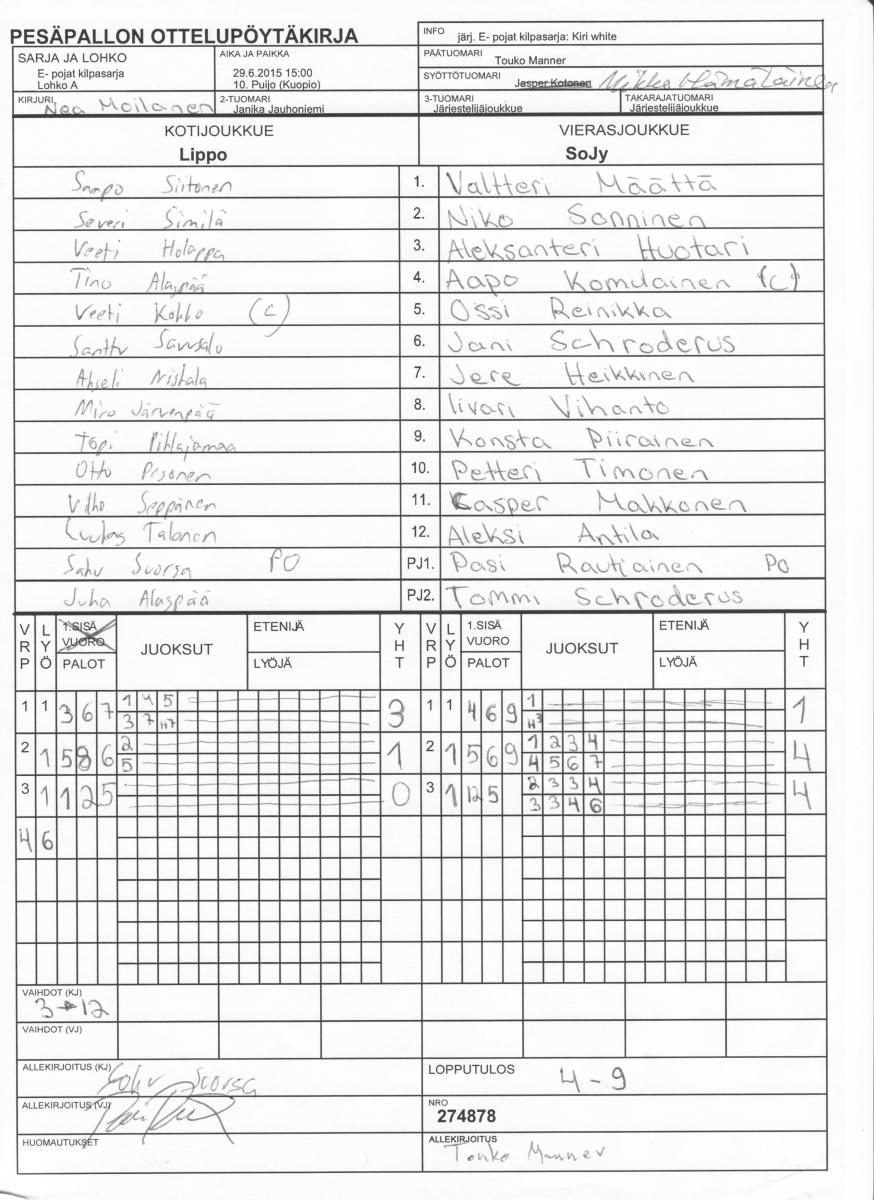 PESÄPALLON OTTELUPÖYTÄKIRJA
INFO järj. E- pojat kilpasarja: Kiri white
SARJA JA LOHKO
E- pojat kilpasarja
Lohko A
AIKA JA PAIKKA
29.6.2015 15:00
10. Puijo (Kuopio)
PÄÄTUOMARI
Touko Manner
SYÖTTÖTUOMARI
Jasper Kotonen Mikko Hämäläinen
KIRJURI Nea Moilanen
2-TUOMARI
Janika Jauhoniemi
3-TUOMARI
Järjestelijäjoukkue
TAKARAJATUOMARI
Järjestelijäjoukkue
KOTIJOUKKUE VIERASJOUKKUE
Lippo SoJy
Sampo Siitonen 1. Valtteri Määttä
Severi Similä 2. Niko Sonninen
Veeti Holappa 3. Aleksanteri Huotari
Tino Alaspää 4. Aapo Komulainen (C)
Veeti Kokko (C) 5. Ossi Reinikka
Santtu Savusalo 6. Jani Schroderus
Akseli Nistala 7. Jere Heikkinen
Miro Järvenpää 8. Iivari Vihanto
Topi Pihlajamaa 9. Konsta Piirainen
Otto Pesonen 10. Petteri Timonen
Vilho Seppänen 11. Casper Makkonen
Luukas Talonen 12. Aleksi Antila
Saku Suorsa PO PJ1. Pasi Rautiainen PO
Juha Alaspää PJ2. Tommi Schroderus
VRP LYÖ 1.SISÄ VUORO PALOT JUOKSUT ETENIJÄ LYÖJÄ YHT VRP LYÖ 1.SISÄ VUORO PALOT JUOKSUT ETENIJÄ LYÖJÄ YHT
1 1 3 6 7 1 4 5 3 1 1 4 6 9 1 1
3 7 H7 H3
2 1 5 8 6 2 1 2 1 5 6 9 1 2 3 4 4
5 4 5 6 7
3 1 1 2 5 0 3 1 1 2 5 2 3 3 4 4
3 3 4 6
4 6
VAIHDOT (KJ)
3→12
VAIHDOT (VJ)
ALLEKIRJOITUS (KJ) Saku Suorsa
LOPPUTULOS 4-9
ALLEKIRJOITUS (VJ)
NRO
274878
HUOMAUTUKSET
ALLEKIRJOITUS
Touko Manner